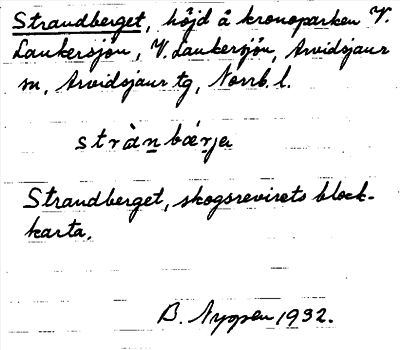 Strandberget, höjd å kronoparken V.
Laukersjön, V. Laukersjön, Arvidsjaur
sn, Arvidsjaur tg, Norrb. l.
strànbærje
Strandberget, skogsrevirets block-
karta.
B. Nyman 1932.